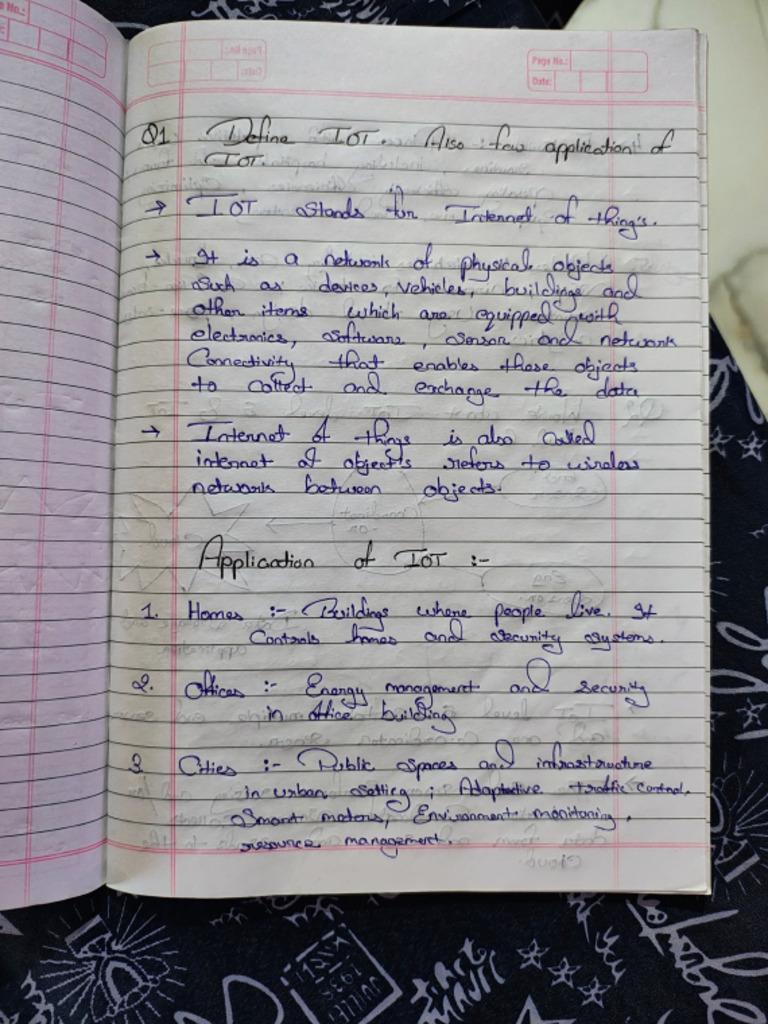 Page No.:
Date:
Q1 Define IOT. Also few application of
IOT.
→ IOT stands for Internet of thing's.
→ It is a network of physical objects
such as devices, vehicles, buildings and
other items which are equipped with
electronics, software, sensor and network
Connectivity that enables these objects
to collect and exchange the data
→ Internet of things is also called
internet of object's refers to wireless
network between objects.
Application of IOT :-
1. Homes :- Buildings where people live. It
Controls homes and security systems.
2. Offices :- Energy management and security
in office building
3. Cities :- Public spaces and infrastructure
in urban setting ; Adaptive traffic control,
Smart meters, Environment monitoring,
resource management.